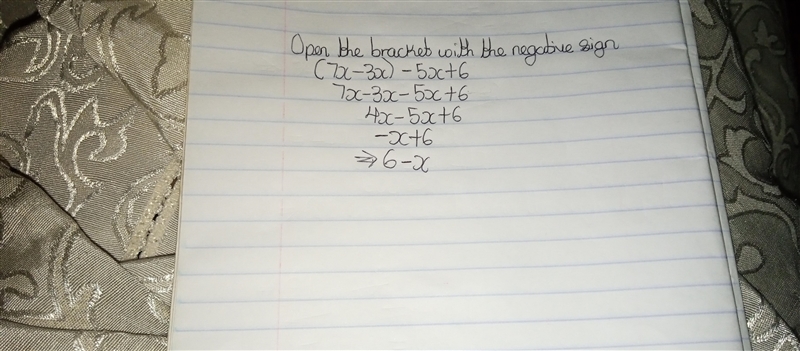 Open the bracket with the negative sign
(7x-3x) - 5x+6
7x-3x-5x+6
4x-5x+6
-x+6
⇒ 6-x